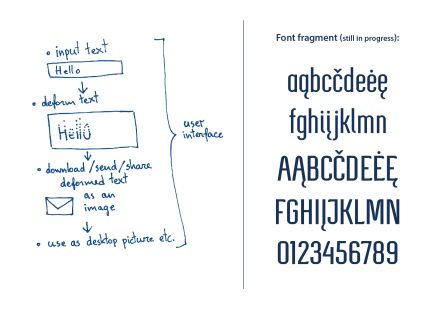 • input text
Hello
• deform text
Hello
• download/send/share
deformed text
as an
image
• use as desktop picture etc.
user
interface
Font fragment (still in progress):
aąbcčdeėę
fghiįjklmn
AĄBCČDEĖĘ
FGHIĮJKLMN
0123456789